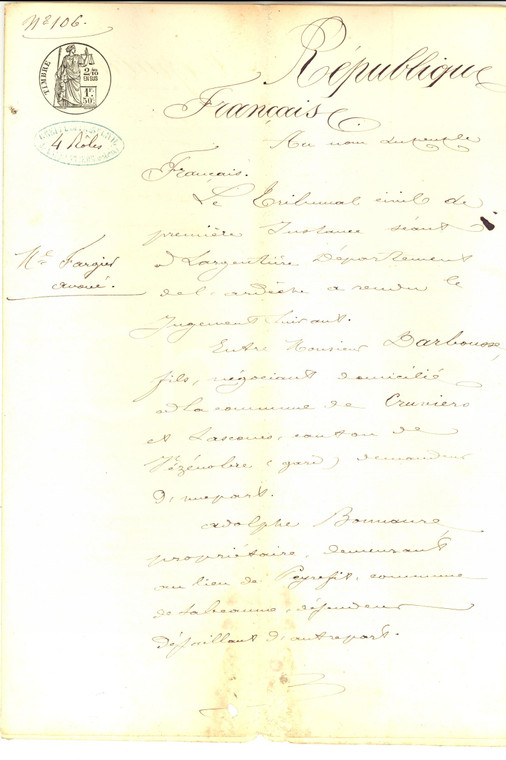 N° 106.
République
Français
TIMBRE
2/10 EN SUS
1F. 50c
4 Rôles
Au nom du peuple
Français.
Le Tribunal civil de
première Instance séant
à Largentière Département
de l'ardèche a rendu le
Jugement Suivant.
Me Fargier
avoué.
Entre Monsieur Darboux,
fils, négociant domicilié
à la commune de Cruviers
et Lascours, canton de
Vézénobre (gard) demandeur
D'une part.
Adolphe Bonnaure
propriétaire, demeurant
au lieu de Peyrefit, commune
de Labeaume, défendeur
Défaillant d'autre part.